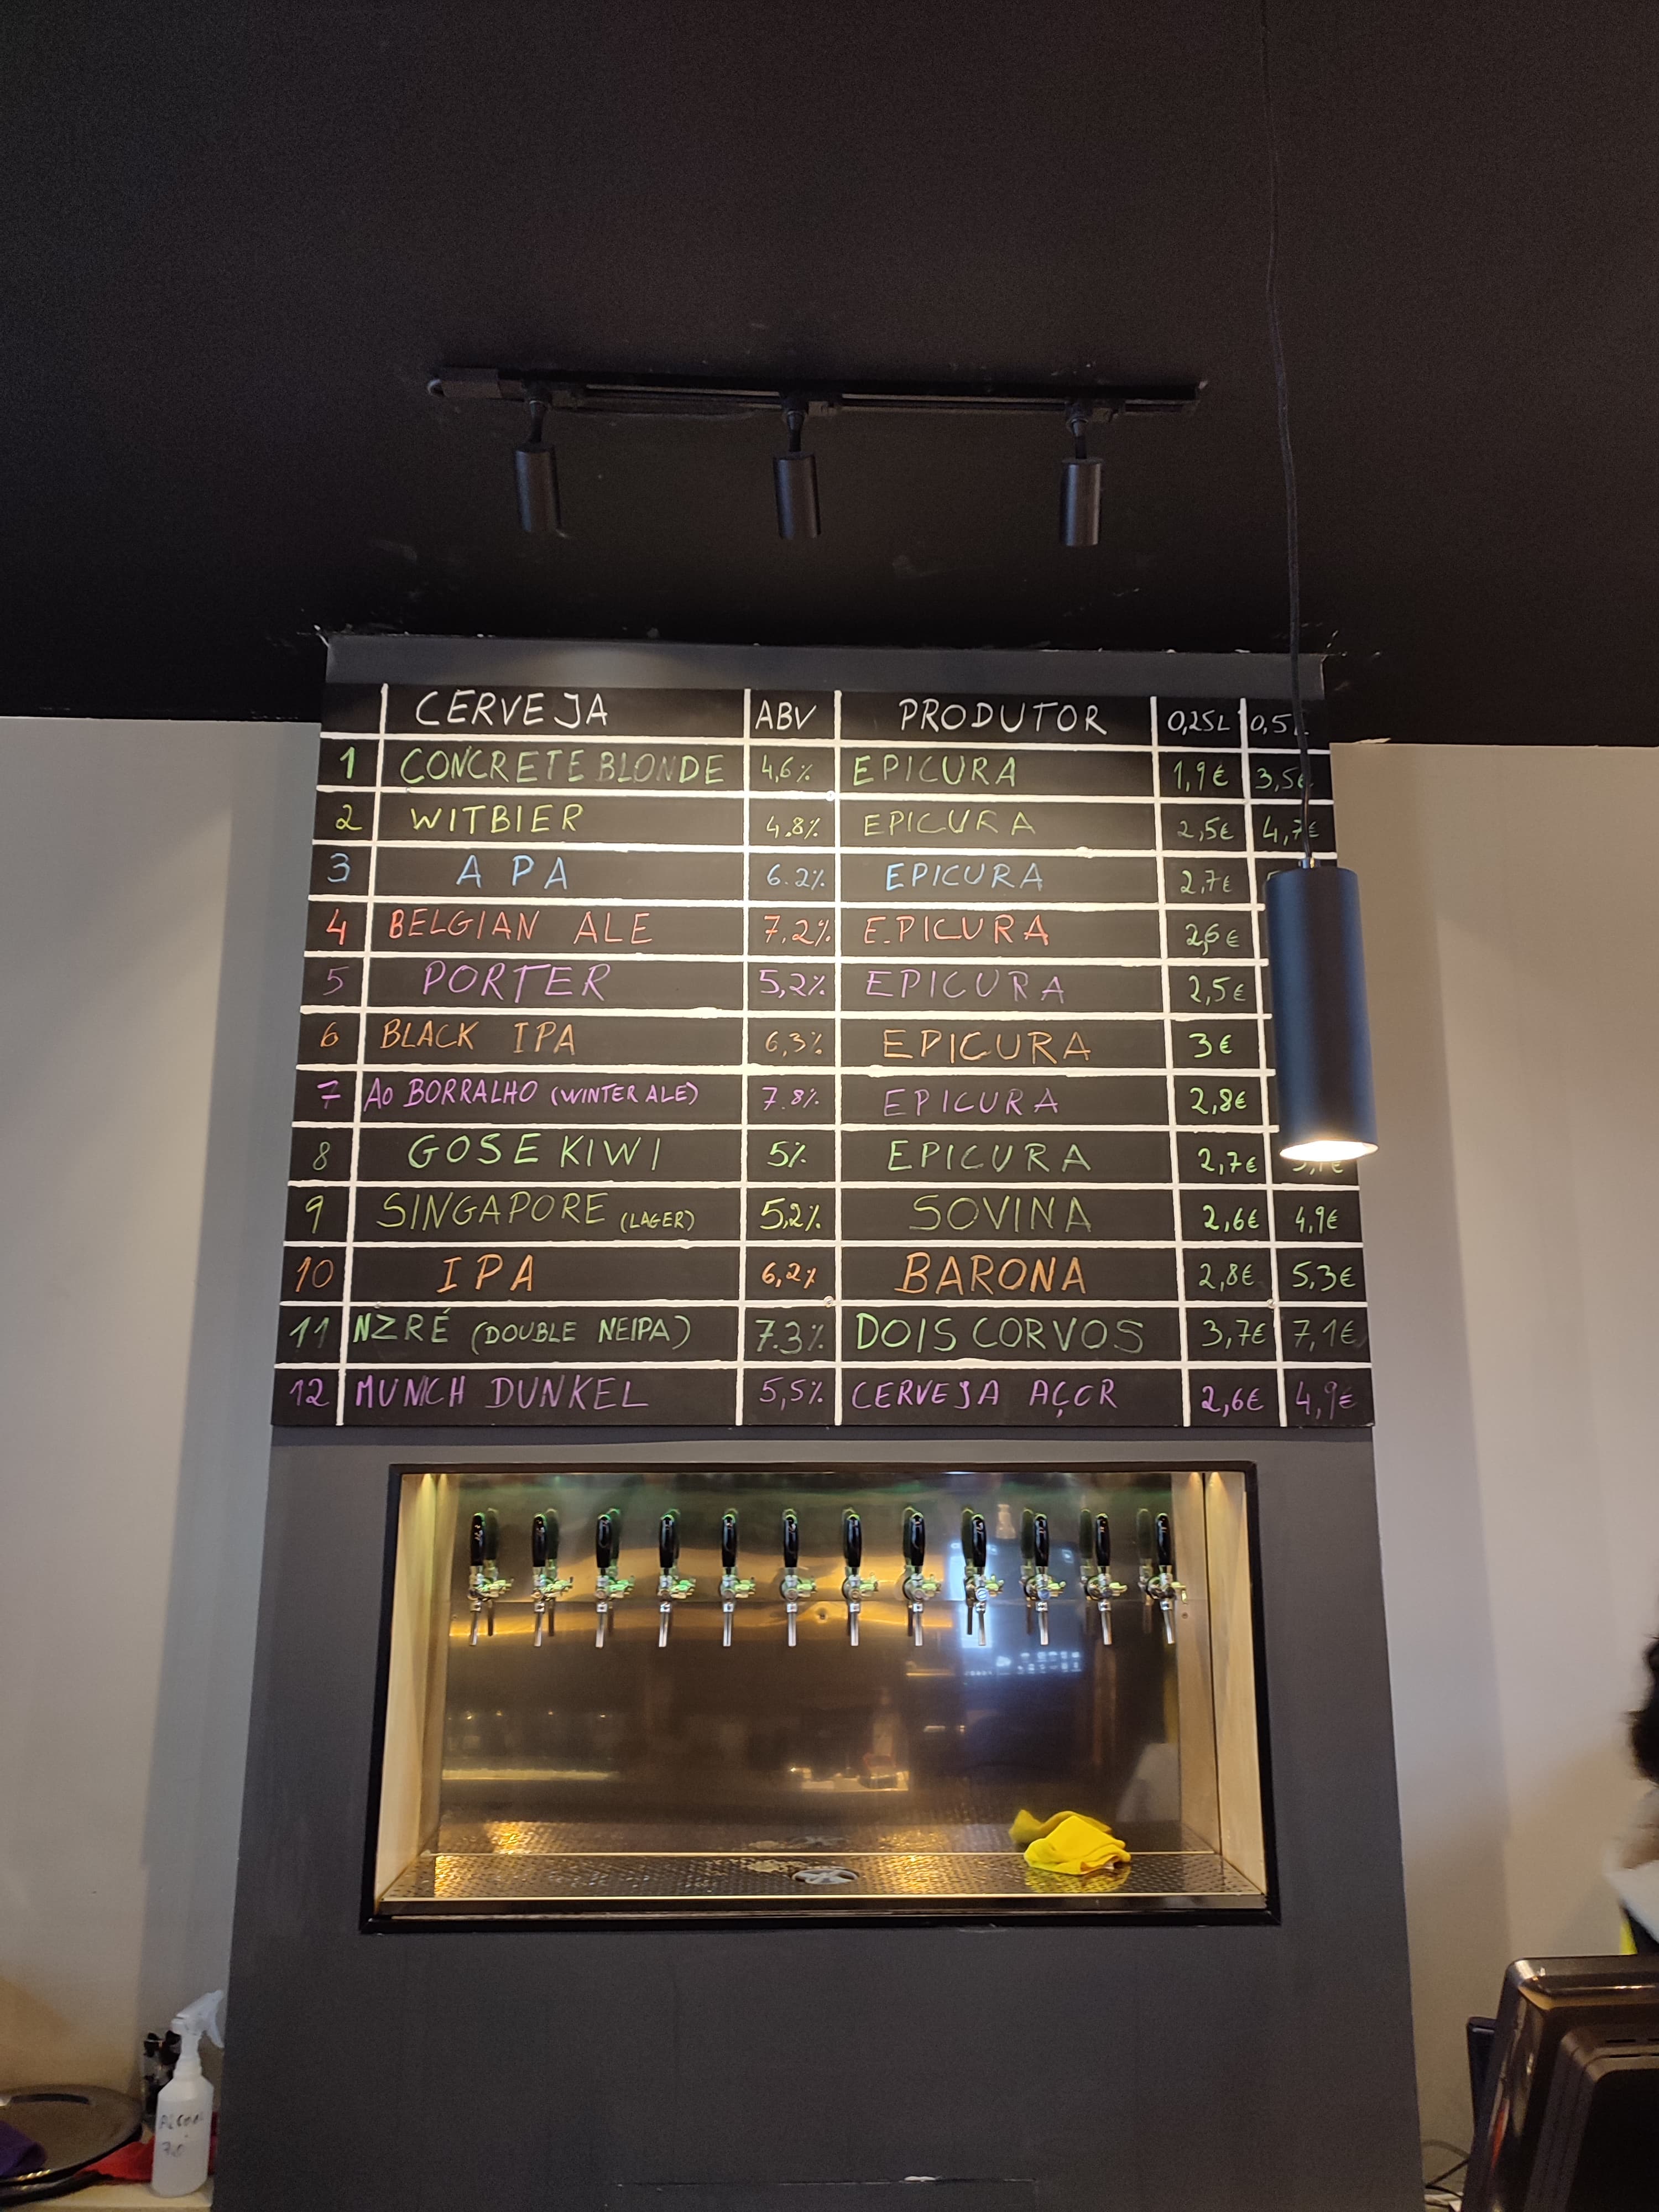 CERVEJA ABV PRODUTOR 0,25L 0,5L
1 CONCRETE BLONDE 4,6% EPICURA 1,9€ 3,5€
2 WITBIER 4.8% EPICURA 2,5€ 4,7€
3 APA 6.2% EPICURA 2,7€
4 BELGIAN ALE 7,2% EPICURA 2,6€
5 PORTER 5,2% EPICURA 2,5€
6 BLACK IPA 6,3% EPICURA 3€
7 AO BORRALHO (WINTER ALE) 7.8% EPICURA 2,8€
8 GOSE KIWI 5% EPICURA 2,7€
9 SINGAPORE (LAGER) 5,2% SOVINA 2,6€ 4,9€
10 IPA 6,2% BARONA 2,8€ 5,3€
11 NZRÉ (DOUBLE NEIPA) 7.3% DOIS CORVOS 3,7€ 7,1€
12 MUNICH DUNKEL 5,5% CERVEJA AÇOR 2,6€ 4,9€